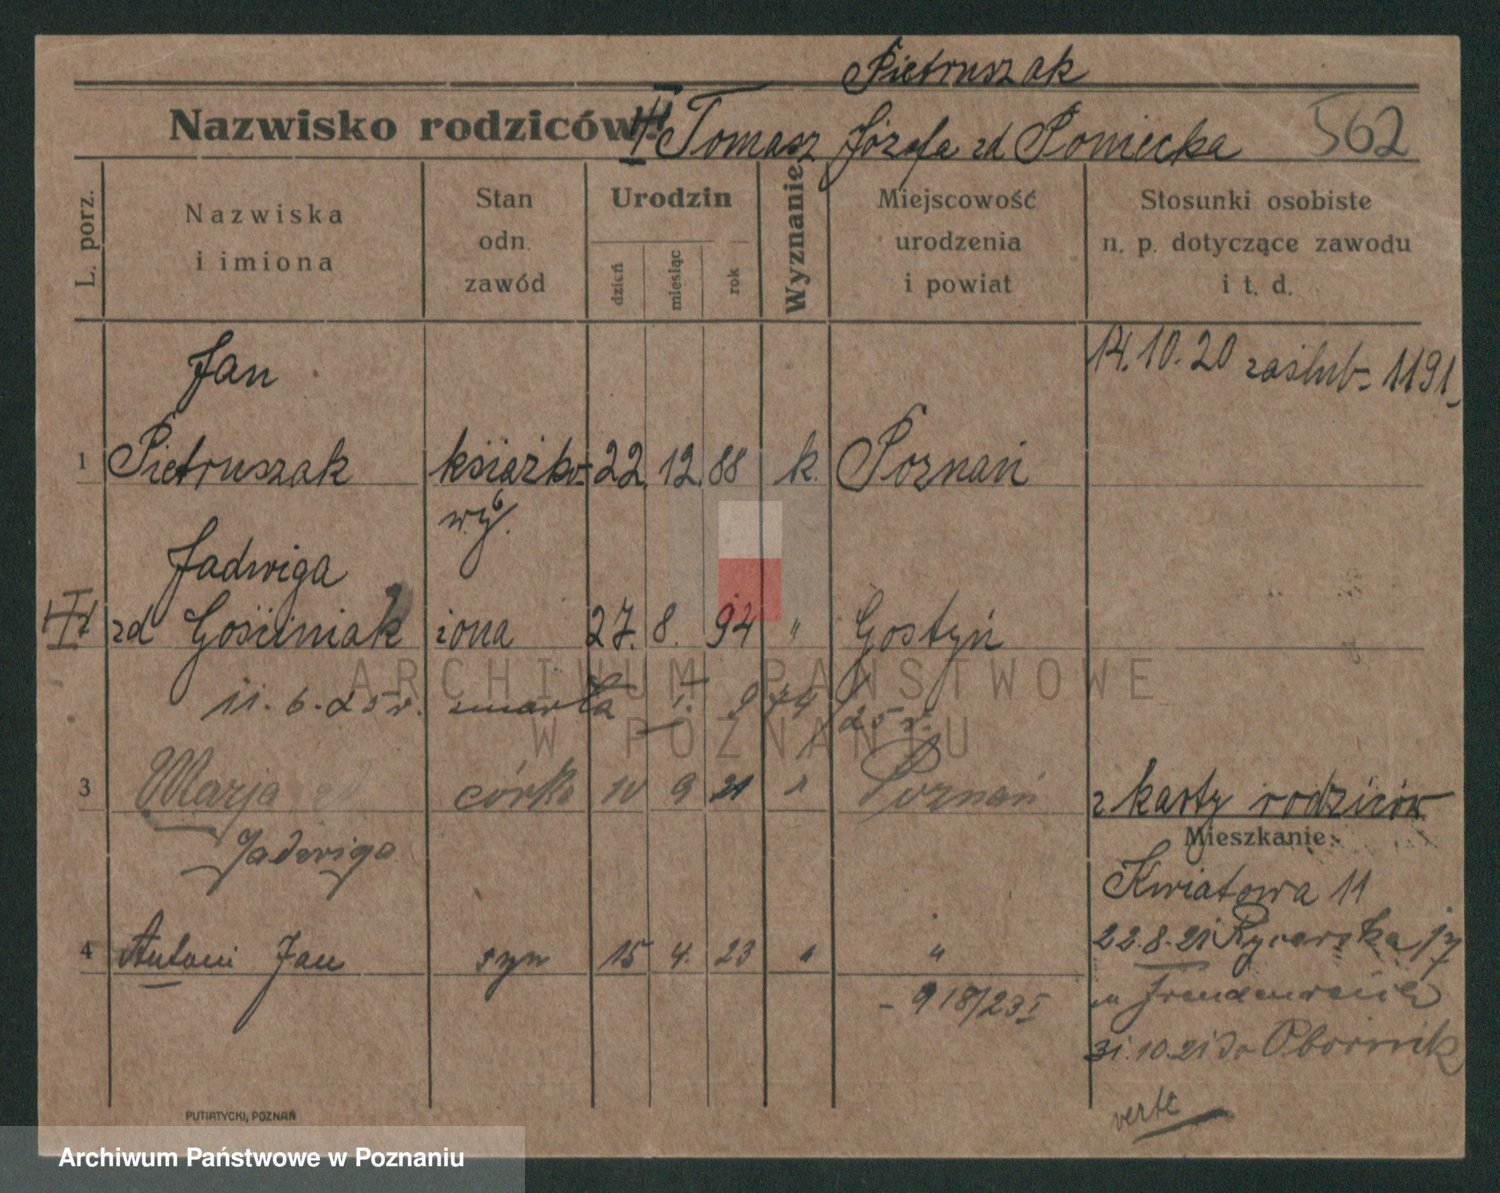 Pietruszak
Nazwisko rodziców: Tomasz Józefa zd Poniecka 562
L. porz.
Nazwiska
i imiona
Stan
odn.
zawód
Urodzin
dzień miesiąc rok
Wyznanie
Miejscowość
urodzenia
i powiat
Stosunki osobiste
n. p. dotyczące zawodu
i t. d.
14.10.20 zaślub. 1191
Jan
1 Pietruszak książko- 22. 12. 88 k. Poznań
wy.
Jadwiga
zd Gościniak żona 27. 8. 94 " Gostyń
11.6.25 r. zmarła I. 974/25 r.
3 Marja córka 10 9 21 " Poznań z karty rodziców
Jadwiga
Mieszkanie
Kwiatowa 11
22.8.21 Rycerska
4 Antoni Jan syn 15 4. 23 " "
- 918/23 I
31.10.21 do Obornik
verte
PUTIATYCKI, POZNAŃ
ARCHIWUM PAŃSTWOWE
W POZNANIU
Archiwum Państwowe w Poznaniu